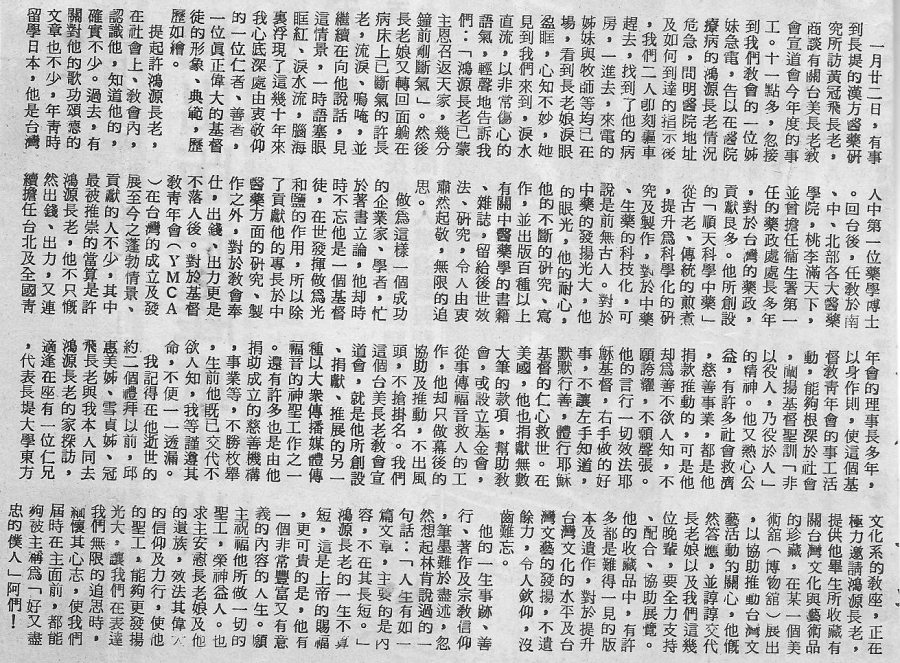 一月廿二日,有事
到長堤的漢方醫藥研
究所訪黃冠飛長老,
商談有關台美長老教
會宣道會今年度的事
工。十一點多,忽接
到我們教會的一位姊
妹急電,告以在醫院
療病的鴻源長老情況
危急,問明醫院地址
及如何到達的指示後
,我們二人即刻驅車
趕去,找到了他的病
房,一進去,來電的
姊妹與牧師等均已在
場,看到長老娘淚眼
盈眶,心知不妙,她
見到我們來到,淚水
直流,以非常傷心的
語氣,輕聲地告訴我
們:「鴻源長老已蒙
主恩召返天家,幾分
鐘前剛斷氣」。然後
長老娘又轉回面躺在
病床上已斷氣的許長
老,流淚、嗚咽,並
繼續在向他說話,見
這情景,一時語塞眼
眶紅、淚水流,腦海
裏浮現了這幾十年來
我心底深處由衷敬仰
的一位仁者、善者,
一位眞正偉大的基督
徒的形象、典範,歷
歷如繪。
提起許鴻源長老,
在社會上、教會內,
認識他、知道他的,
確實不少。過去,有
關對他的歌功頌惪的
文章也不少,年青時
留學日本,他是台灣
人中第一位藥學博士
。回台後,任敎於南
、中、北部各大醫藥
學院,桃李滿天下,
並曾擔任衞生署第一
任的藥政處處長多年
,對於台灣的藥政,
貢獻良多。他所創設
的「順天科學中藥」
從古老、傳統的煎煮
,提升爲科學化的硏
究及製作,對於中藥
、生藥的科技化,可
說是前無古人。對於
中藥的發揚光大,他
的眼光,他的耐心,
他的不斷的研究、寫
作,並出版百種以上
有關中醫藥學的書籍
、雜誌,留給後世效
法、研究,令人由衷
肅然起敬,無限的追
思。
做爲這樣一個成功
的企業家、學者,忙
於著書立論,他却時
時不忘他是一個基督
徒,在世發揮做爲光
和鹽的作用,所以除
了貢獻他的專長於中
醫藥方面的研究、製
作之外,對於教會奉
仕,出錢、出力更是
不落人後。對於基督
教青年會(YMCA
)在台灣的成立及發
展至今之蓬勃情景、
貢獻的人不少,其中
最被推崇的當算是許
鴻源長老,他不只慨
然出錢、出力,又連
續擔任台北及全國青
年會的理事長多年,
以身作則,使這個基
督教青年會的事工活
動,能夠根深於社會
,闡揚基督聖訓「非
以役人,乃役於人」
的精神。他又熱心公
益,有許多社會救濟
、慈善事業,都是他
捐款推動的,可是他
却爲善不欲人知,不
願誇耀,不願聲張。
他的言行一切效法耶
穌基督,右手做的好
事,不讓左手知道,
默默行善,體行耶穌
基督的仁心救世。在
美國,他也捐獻無數
大筆的款項,幫助教
會,或設立基金會,
從事傳福音救人的工
作,他却只做幕後的
協助及推動,不出風
頭,不搶掛名。我們
這個台美長老教會宣
道會,就是他所創設
、捐獻、推展的另一
種以大衆傳播媒體傳
福音的神聖工作之一
。還有許多也是由他
捐助成立的慈善機構
、事業等,不勝枚舉
,生前他既已交代不
欲人知,我等謹遵其
命,不便一一透漏。
我記得在他逝世的
約二個禮拜以前,邱
惠美姊、雪貞姊、冠
飛長老與我本人同去
鴻源長老的家探訪,
適逢在座有一位仁兄
,代表長堤大學東方
文化系的敎座,正在
極力邀請鴻源長老,
提供他畢生所收藏有
關台灣文化與藝術品
的珍藏,在某一個美
術館(博物館)展出
,以協助推動台灣文
藝活動的關心,他慨
然答應,並諄諄交代
長老娘以及我們這幾
位晚輩,要全力支持
、配合、協助展覽。
他的收藏品中,有許
多都是難得一見的版
本及遺作,對於提升
台灣文化的水平及台
灣文藝的發揚,不遺
餘力,令人欽仰,沒
齒難忘。
他的一生事跡、善
行、著作及宗教信仰
,筆墨難於盡述,忽
然想起林肯說過的一
句話:「人生有如一
篇文章,主要的是內
容,不在其長短。」
鴻源長老的一生不算
短,這是上帝的賜福
,更可貴的是,他有
一個非常豐富又有意
義的內容的人生。願
主祝福他所做一切的
聖工,榮神益人。也
求主安慰長老娘及他
的遺族,效法其偉大
的信仰及力行,使他
的聖工,能夠更發揚
光大,讓我們在表達
我們無限的追思時,
稱懷其心志,使我們
屆時在主面前,都能
夠被主稱爲「好又盡
忠的僕人」阿們!